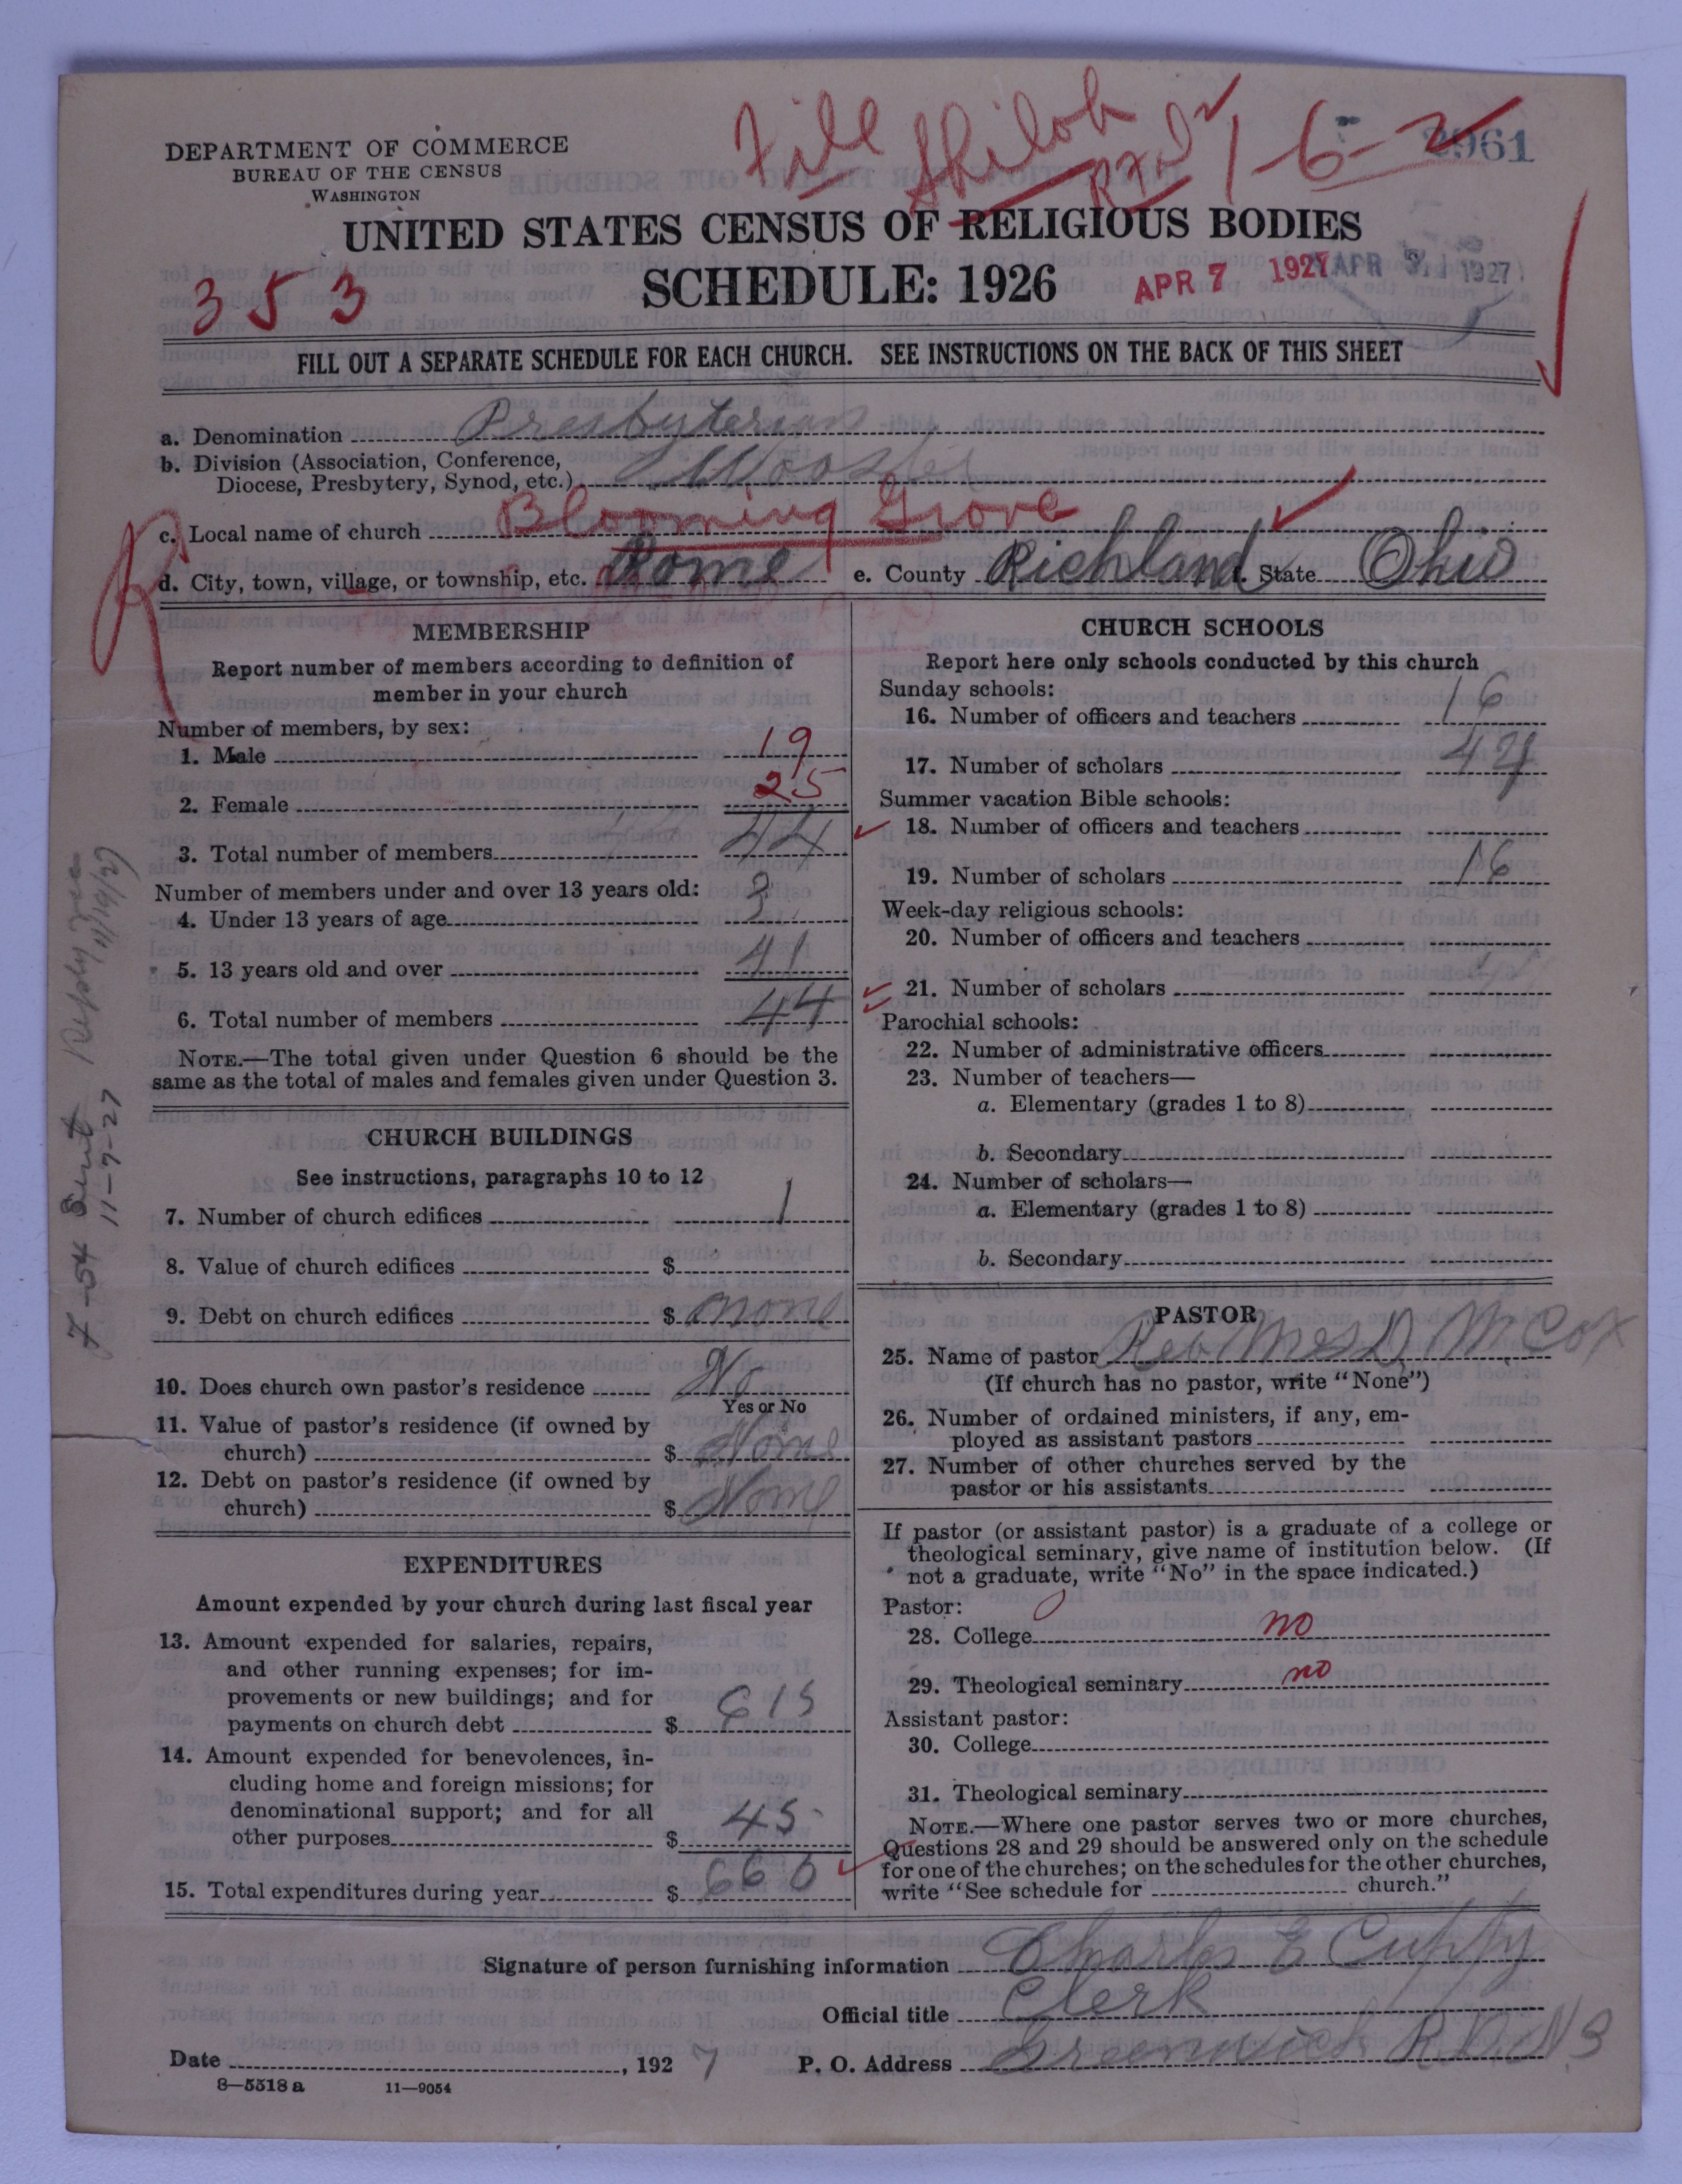 Fill Shiloh 1-6-2 2961
DEPARTMENT OF COMMERCE
BUREAU OF THE CENSUS
WASHINGTON
UNITED STATES CENSUS OF RELIGIOUS BODIES
353 SCHEDULE: 1926 APR 7 1927 APR 1927
FILL OUT A SEPARATE SCHEDULE FOR EACH CHURCH. SEE INSTRUCTIONS ON THE BACK OF THIS SHEET
a. Denomination Presbyterian
b. Division (Association, Conference,
Diocese, Presbytery, Synod, etc.) Wooster
c. Local name of church Blooming Grove
d. City, town, village, or township, etc. Rome e. County Richland f. State Ohio
MEMBERSHIP
Report number of members according to definition of
member in your church
Number of members, by sex:
1. Male 19
2. Female 25
3. Total number of members 44
Number of members under and over 13 years old:
4. Under 13 years of age 3
5. 13 years old and over 41
6. Total number of members 44
NOTE.—The total given under Question 6 should be the
same as the total of males and females given under Question 3.
CHURCH BUILDINGS
See instructions, paragraphs 10 to 12
7. Number of church edifices 1
8. Value of church edifices $
9. Debt on church edifices $ none
10. Does church own pastor's residence No
Yes or No
11. Value of pastor's residence (if owned by
church) $ None
12. Debt on pastor's residence (if owned by
church) $ None
EXPENDITURES
Amount expended by your church during last fiscal year
13. Amount expended for salaries, repairs,
and other running expenses; for im-
provements or new buildings; and for
payments on church debt $ 615
14. Amount expended for benevolences, in-
cluding home and foreign missions; for
denominational support; and for all
other purposes $ 45
15. Total expenditures during year $ 660
CHURCH SCHOOLS
Report here only schools conducted by this church
Sunday schools:
16. Number of officers and teachers 16
17. Number of scholars
Summer vacation Bible schools:
18. Number of officers and teachers
19. Number of scholars 16
Week-day religious schools:
20. Number of officers and teachers
21. Number of scholars
Parochial schools:
22. Number of administrative officers
23. Number of teachers—
a. Elementary (grades 1 to 8)
b. Secondary
24. Number of scholars—
a. Elementary (grades 1 to 8)
b. Secondary
PASTOR
25. Name of pastor Rev Mrs D M Cox
(If church has no pastor, write "None")
26. Number of ordained ministers, if any, em-
ployed as assistant pastors
27. Number of other churches served by the
pastor or his assistants
If pastor (or assistant pastor) is a graduate of a college or
theological seminary, give name of institution below. (If
not a graduate, write "No" in the space indicated.)
Pastor:
28. College no
29. Theological seminary no
Assistant pastor:
30. College
31. Theological seminary
NOTE.—Where one pastor serves two or more churches,
Questions 28 and 29 should be answered only on the schedule
for one of the churches; on the schedules for the other churches,
write "See schedule for church."
Signature of person furnishing information Charles E Cuppy
Official title Clerk
Date , 1927 P. O. Address Greenwich R.D. N3
8—5518a 11—9054
7-54 Sent
11-9-27